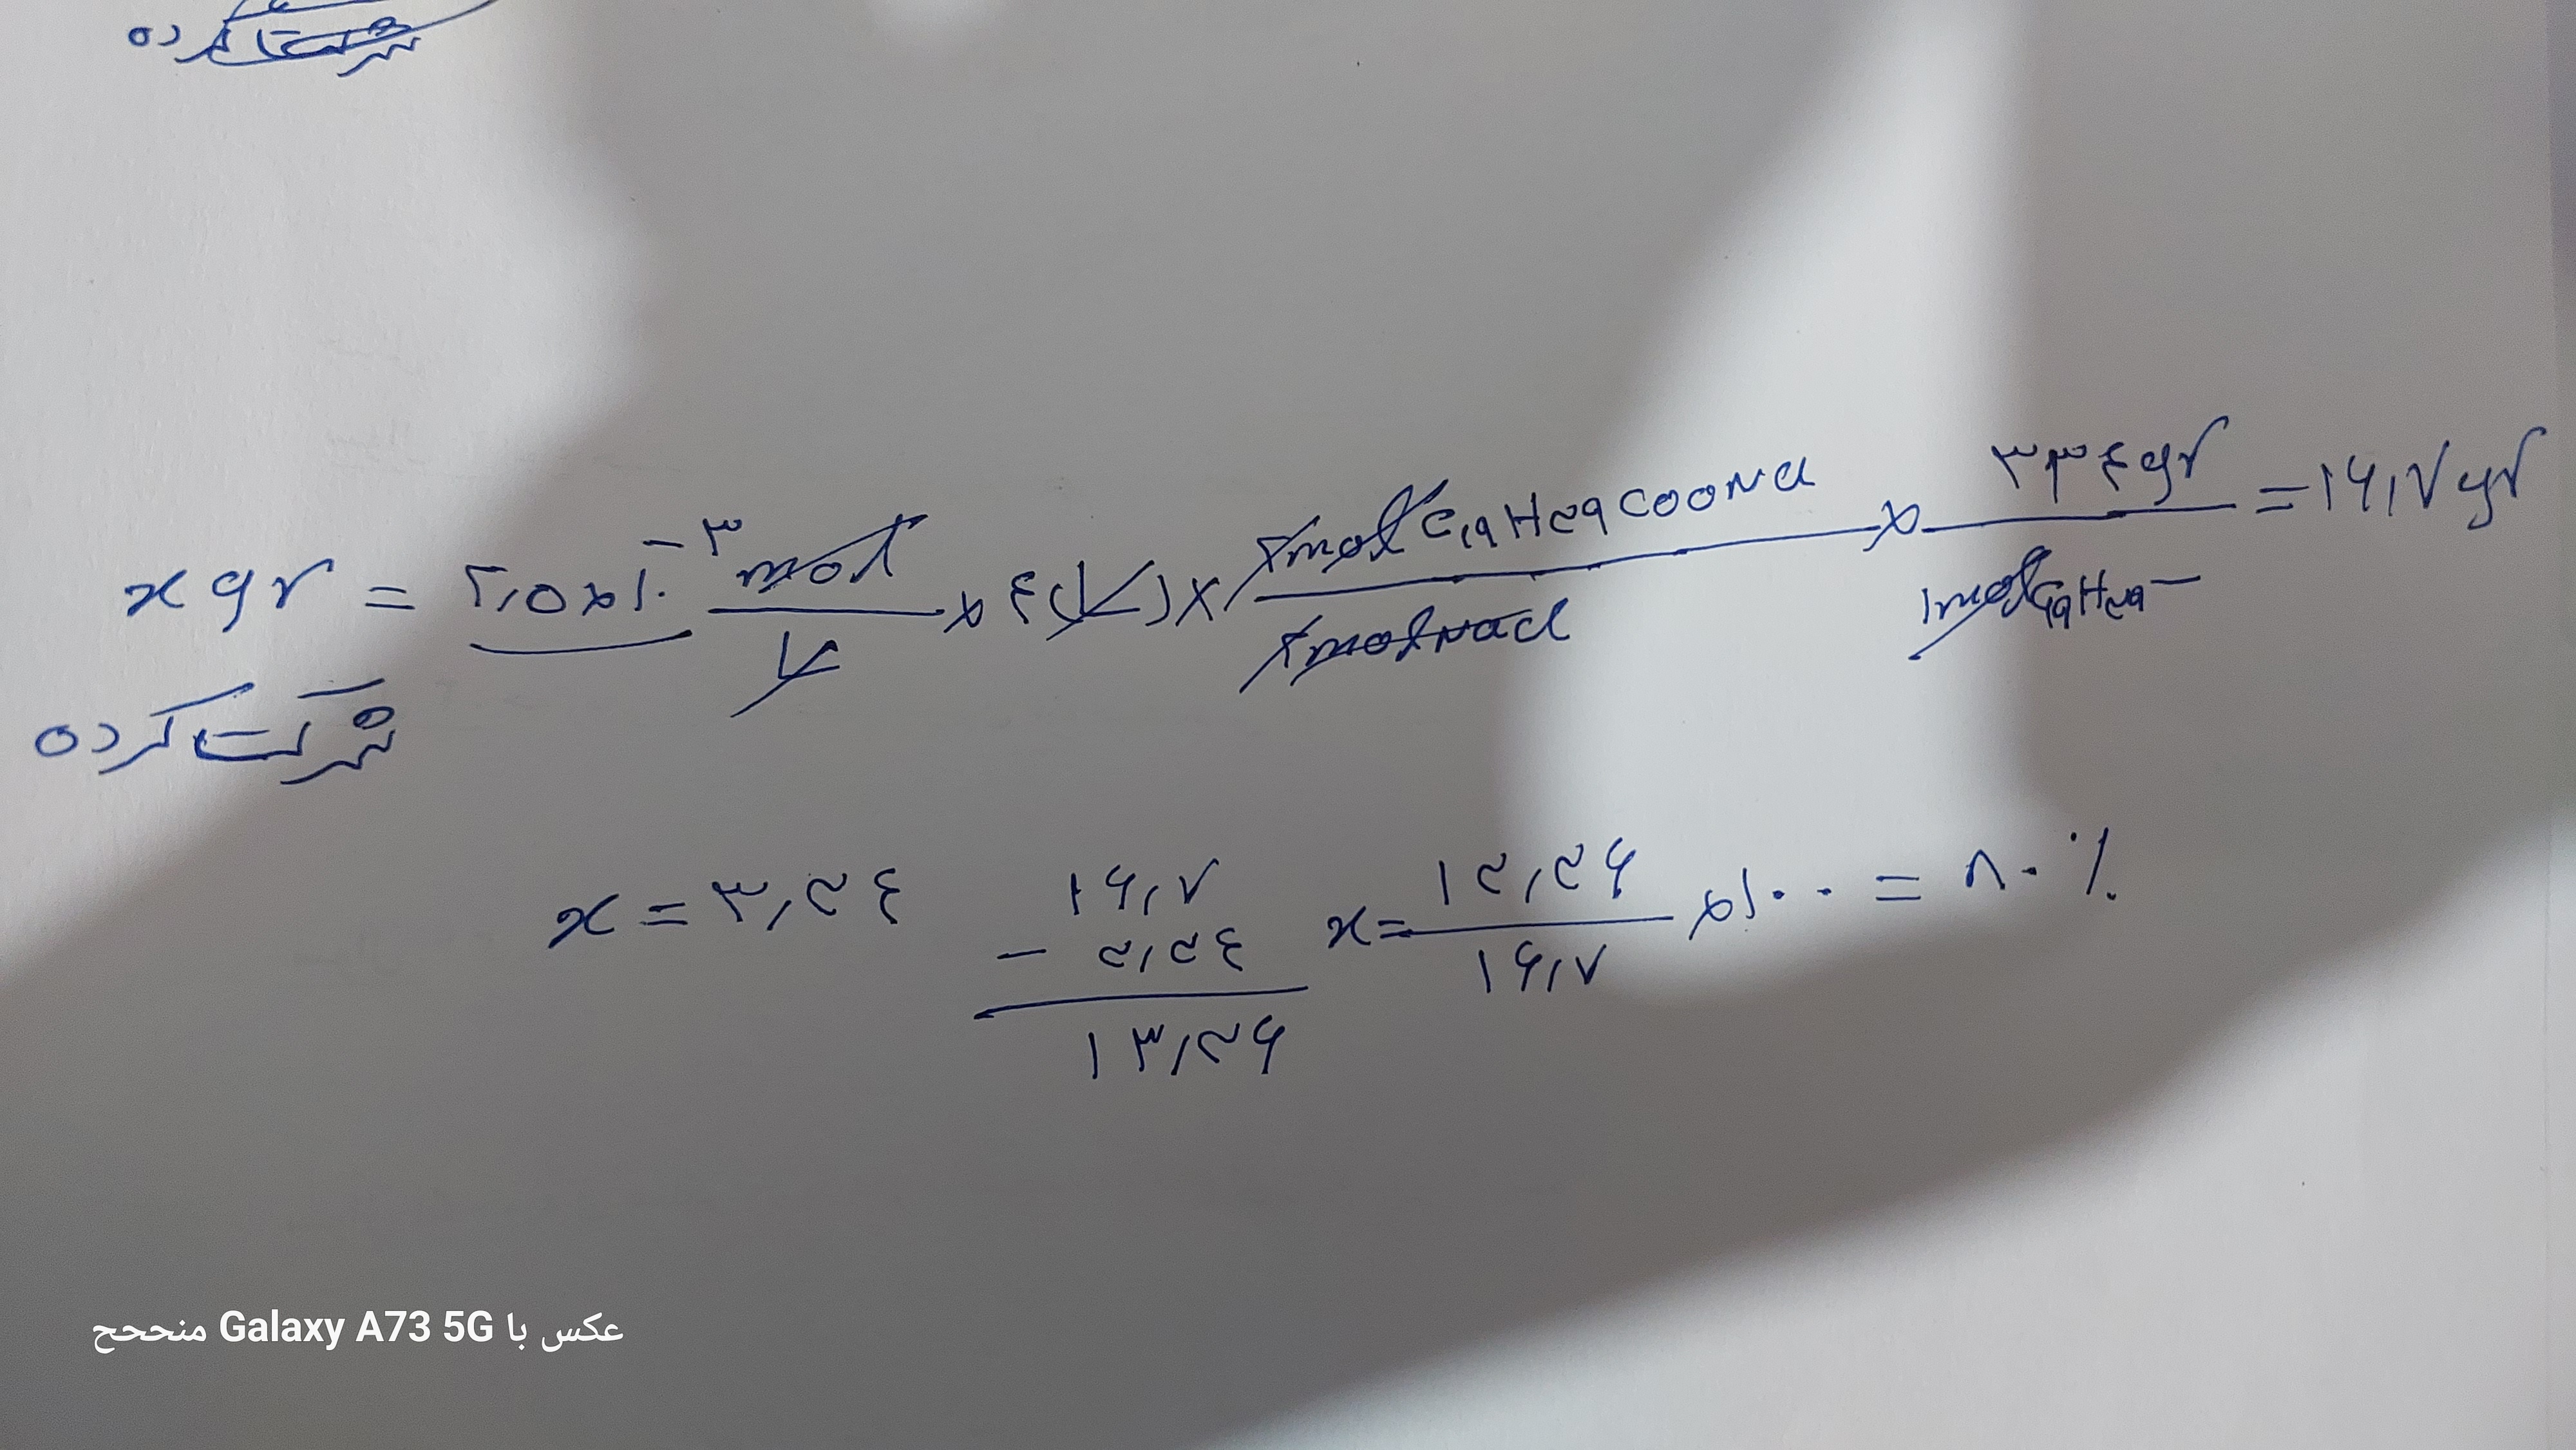 شرکت کرده
x gr = ۲٫۵×۱۰^-۳ mol / ۱L × ۴(L) × ۲mol C۱۹H۲۹COONa / ۲mol NaCl × ۳۳۴gr / ۱mol C۱۹H۲۹— = ۱۶٫۷gr
شرکت کرده
x = ۳٫۲۴
۱۶٫۷ − ۲٫۲۴ = ۱۳٫۲۶
x = ۱۲٫۲۶ / ۱۶٫۷ × ۱۰۰ = ۸۰٪
عکس با Galaxy A73 5G منححح